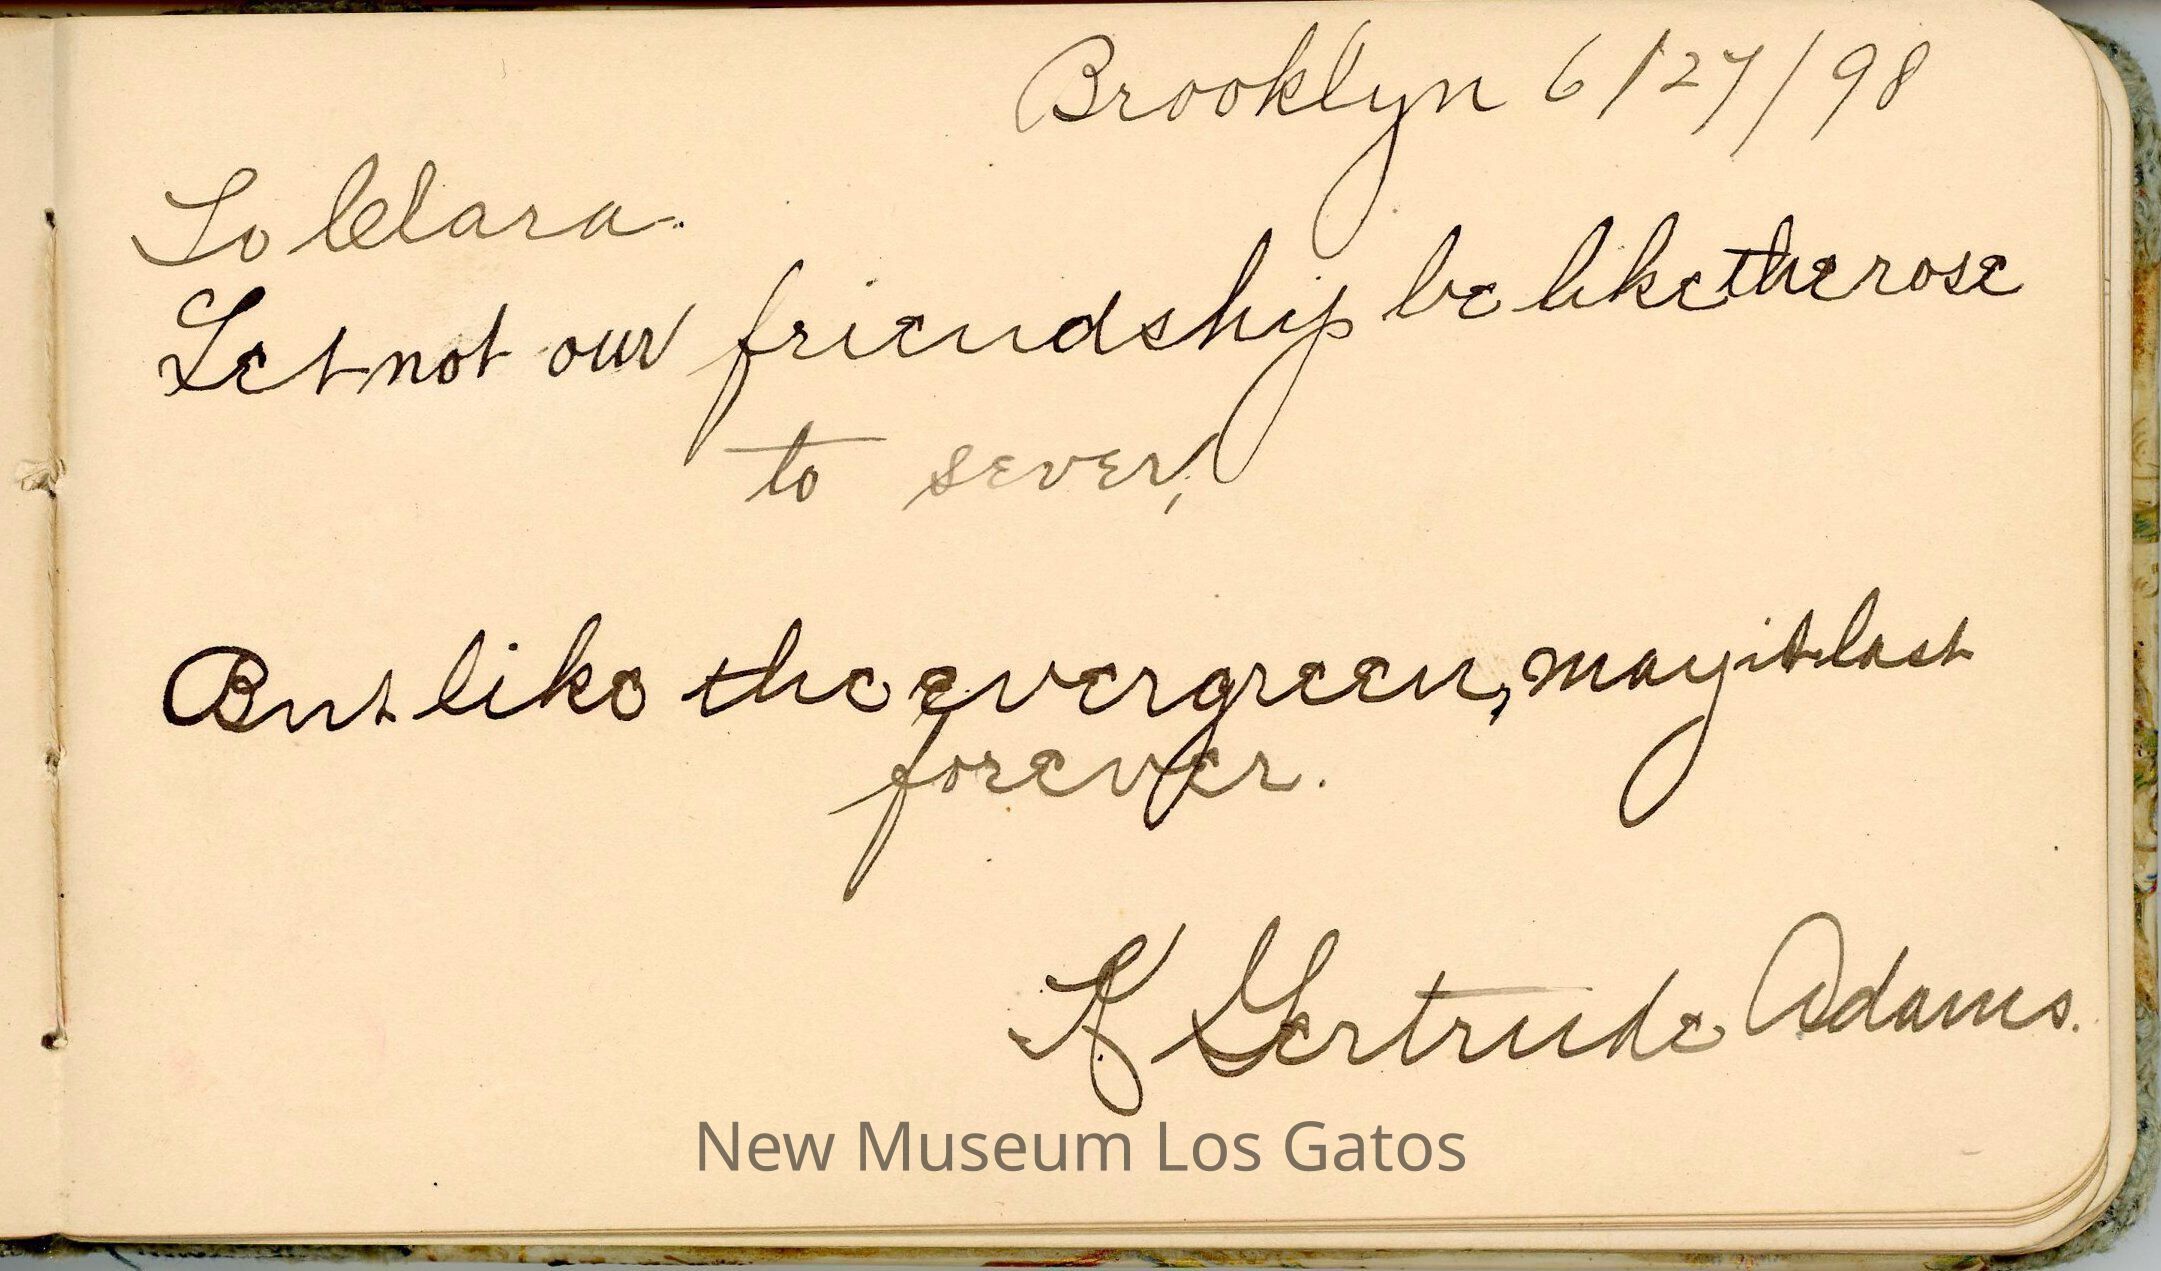 Brooklyn 6/27/98
To Clara.
Let not our friendship be like the rose
to sever,
But like the evergreen, may it last
forever.
K Gertrude Adams.
New Museum Los Gatos